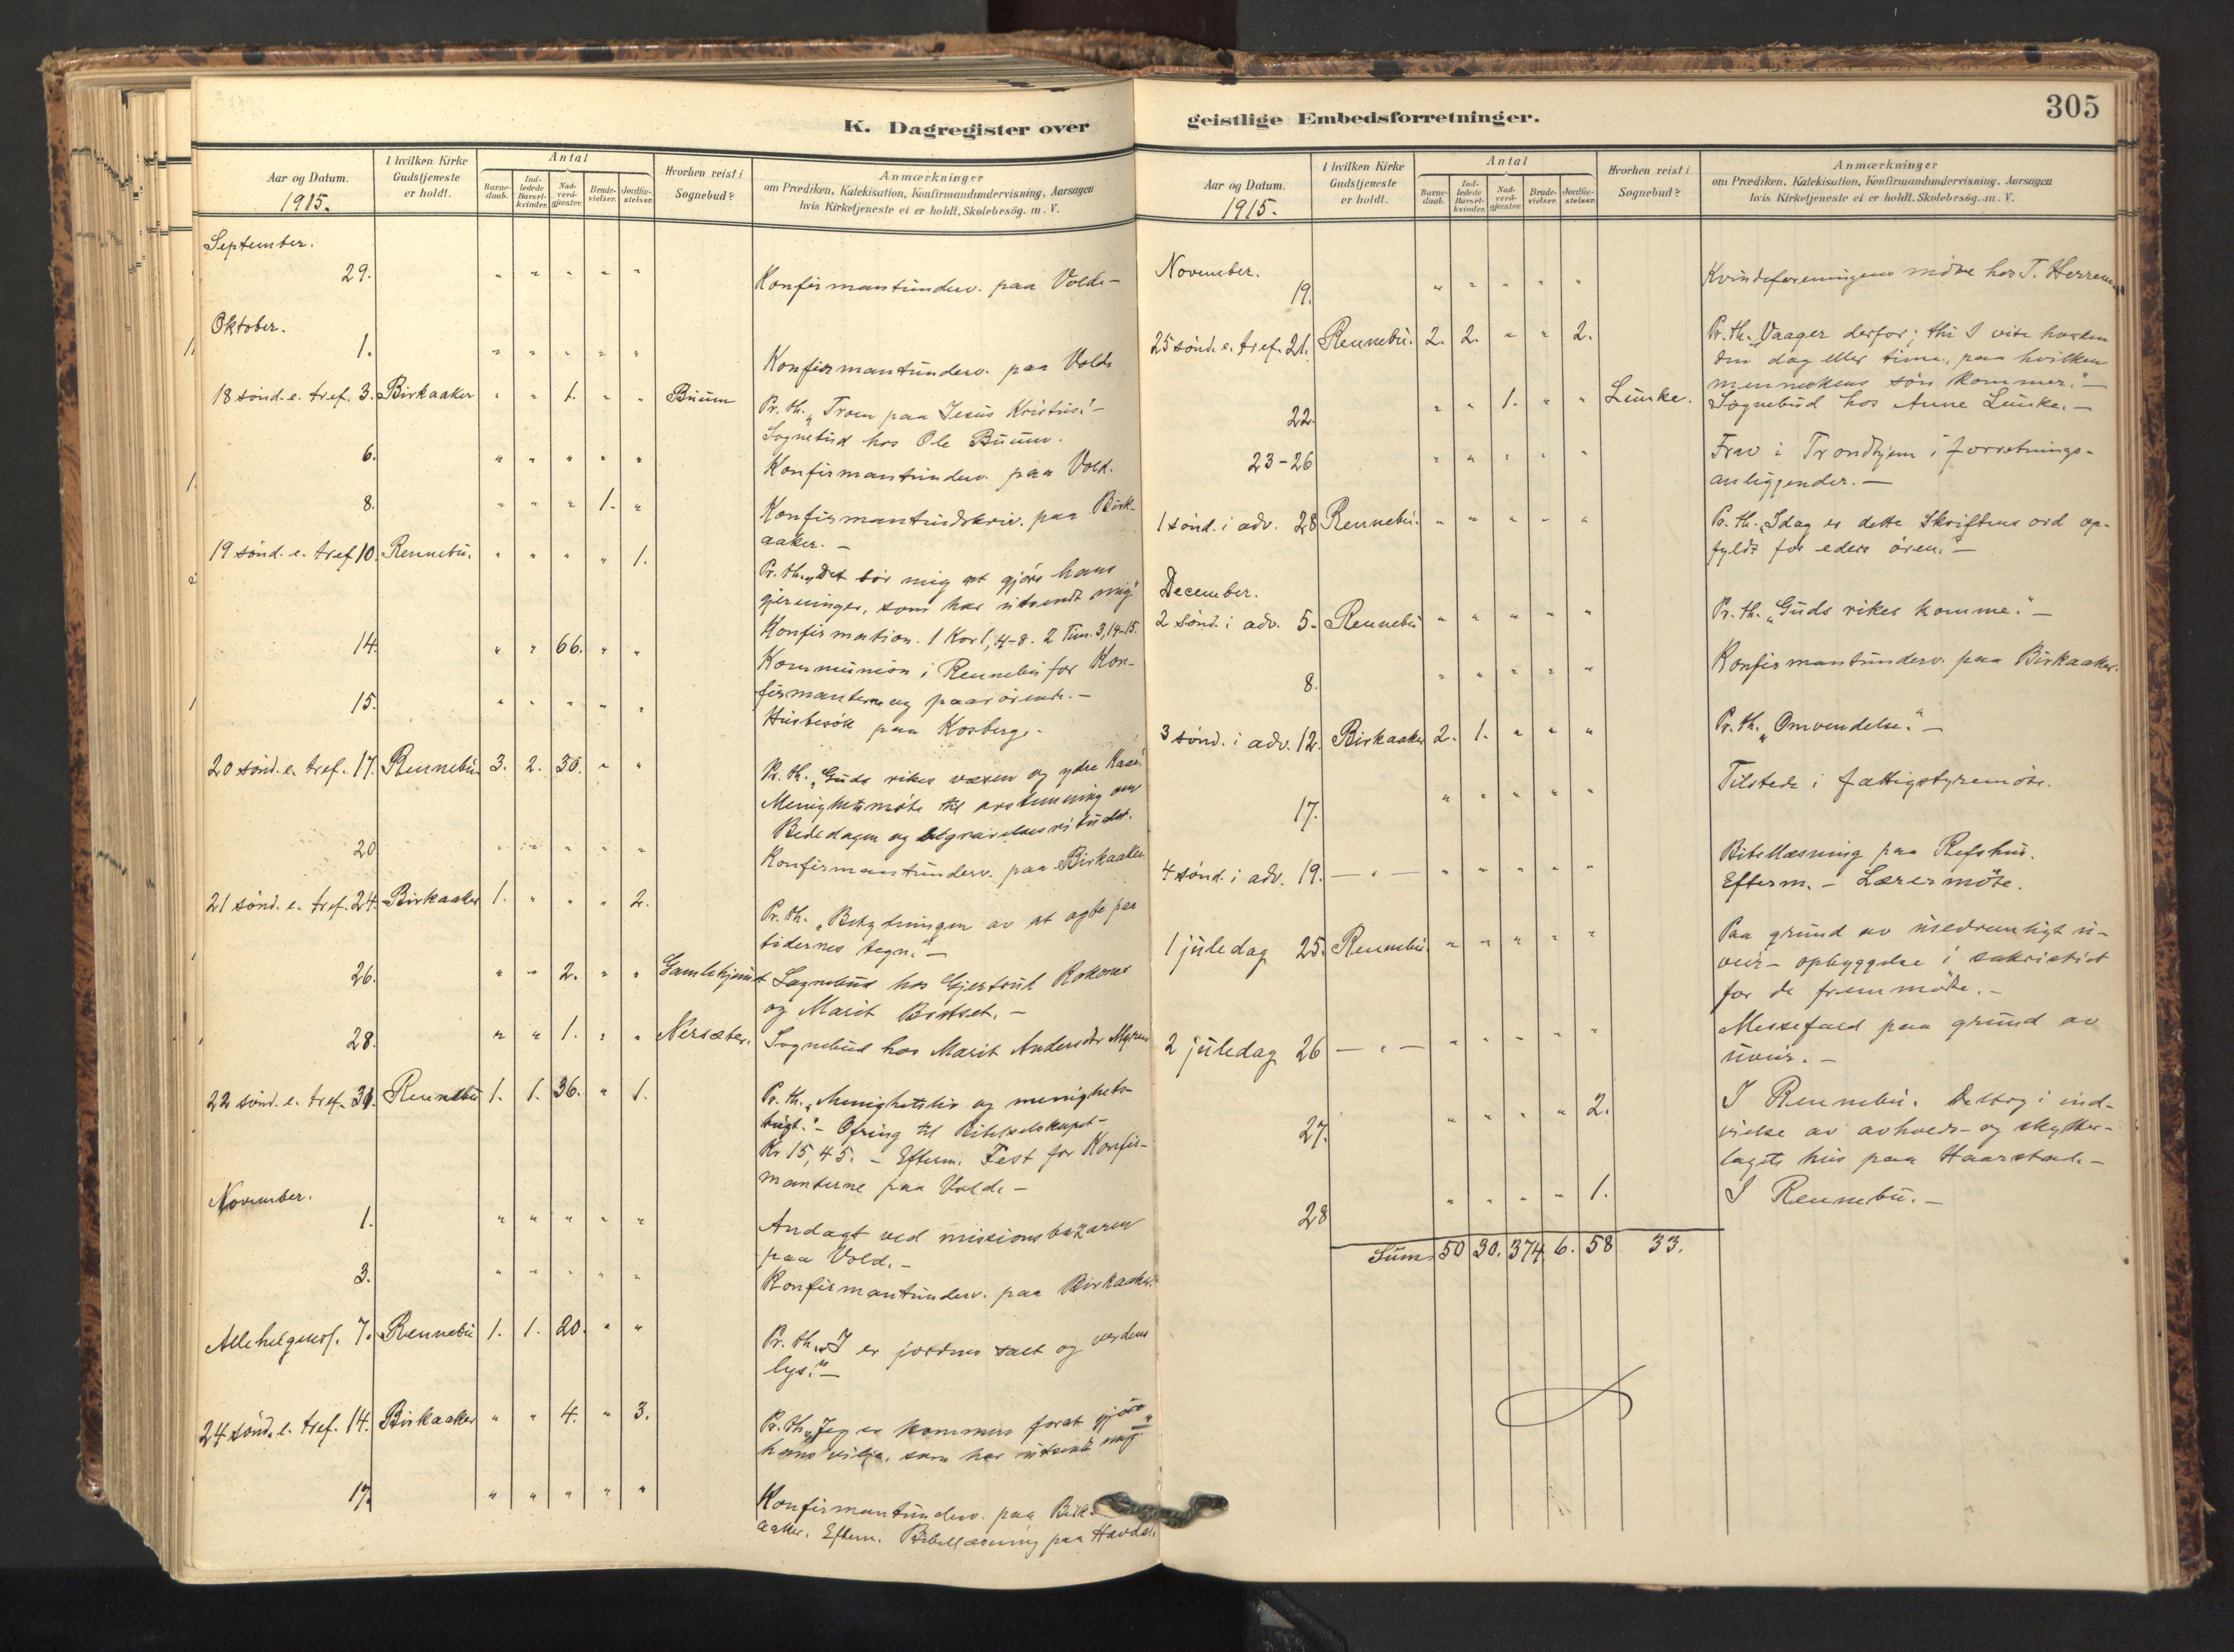 K. Dagregister over
Aar og Datum.
1915.
I hvilken Kirke
Gudstjeneste
er holdt.
Antal
Barne-
daab.
Ind-
ledede
Barsel-
kvinder.
Nad-
verd-
gjæster.
Brude-
vielser.
Jordfæ-
stelser.
Hvorhen reist i
Sognebud?
Anmærkninger
om Prædiken, Katekisation, Konfirmandundervisning, Aarsagen
hvis Kirketjeneste ei er holdt, Skolebesög. m. V.
September.
29. " " " " " Konfirmantunderv. paa Vold. –
Oktober.
1. " " " " " Konfirmantunderv. paa Vold.
18 sönd. e. tref. 3. Birkaaker " " 1. " " Buum Pr. th. „Troen paa Jesus Kristus." –
Sognebud hos Ole Buum.
6. " " " " " Konfirmantunderv. paa Vold.
8. " " " 1. " Konfirmantindskriv. paa Birk-
aaker. –
19 sönd. e. tref. 10. Rennebu. " " " " 1. Pr. th. „Det bör mig at gjöre hans
gjerninger, som har utsendt mig."
Konfirmation. 1 Kor 1, 4-8. 2 Tim. 3, 14-15.
14. " " 66. " " Kommunion i Rennebu for Kon-
firmanterne og paarörende. –
15. " " " " " Husbesök paa Korberge.
20 sönd. e. tref. 17. Rennebu 3. 2. 30. " " Pr. th. „Guds rikes væsen og ydre kaar."
Menighetsmöte til avstemning om
Bededagen og begravelsesritualet.
20 " " " " " Konfirmantunderv. paa Birkaaker.
21 sönd. e. tref. 24. Birkaaker 1. " " " 2. Pr. th. „Betydningen av at agte paa
tidernes tegn." –
26. " " 2. " " Gamlehjemmet Sognebud hos Gjertrud Rokones
og Marit Bortset. –
28. " " 1. " " Nersæter. Sognebud hos Marit Andersdtr Myren
22 sönd. e. tref. 31. Rennebu 1. 1. 36. " 1. Pr. th. „Menighetsliv og menighets-
tugt." – Ofring til Bibelselskapet –
Kr 15,45. – Efterm. Fest for Konfir-
manterne paa Vold. –
November.
1. " " " " " Andagt ved missionsbazaren
paa Vold. –
3. " " " " " Konfirmantunderv. paa Birkaaker.
Allehelgensf. 7. Rennebu 1. 1. 20. " " Pr. th. „I er jordens salt og verdens
lys." –
24 sönd. e. tref. 14. Birkaaker " " 4. " 3. Pr. th. „Jeg er kommen forat gjöre
hans vilje, som har utsendt mig."
17. " " " " " Konfirmantunderv. paa Birk-
aaker. Efterm. Bibellæsning paa Havdal.
geistlige Embedsforretninger.
305
Aar og Datum.
1915.
I hvilken Kirke
Gudstjeneste
er holdt.
Antal
Barne-
daab.
Ind-
ledede
Barsel-
kvinder.
Nad-
verd-
gjæster.
Brude-
vielser.
Jordfæ-
stelser.
Hvorhen reist i
Sognebud?
Anmærkninger
om Prædiken, Katekisation, Konfirmandundervisning, Aarsagen
hvis Kirketjeneste ei er holdt, Skolebesög. m. V.
November.
19. " " " " " Kvindeforeningens möte hos T. Herrem
25 sönd. e. tref. 21. Rennebu. 2. 2. " " 2. Pr. th. „Vaager derfor; thi I vite hverken
den dag eller time, paa hvilken
menneskens sön kommer." –
22. " " 1. " " Lunke. Sognebud hos Anne Lunke. –
23-26 " " " " " Fra v i Trondhjem i forretnings-
anliggender. –
1 sönd. i adv. 28 Rennebu. " " " " " Pr. th. „Idag er dette Skriftens ord op-
fyldt for eders ören." –
December.
2 sönd. i adv. 5. Rennebu " " " " " Pr. th. „Guds rikes komme." –
8. " " " " " Konfirmantunderv. paa Birkaaker.
3 sönd. i adv. 12. Birkaaker 2. 1. " " " Pr. th. „Omvendelse." –
17. " " " " " Tilstede i fattigstyremöte.
4 sönd. i adv. 19. – " – " " " " " Bibellæsning paa Refshus.
Efterm. – Lærermöte.
1 juledag 25. Rennebu " " " " " Paa grund av usedvanligt u-
veir – opbyggelse i sakristiet
for de fremmötte. –
2 juledag 26 – " – " " " " " Messefald paa grund av
uveir. –
27. " " " " 2. I Rennebu. Deltog i ind-
vielse av avholds- og skytter-
lagets hus paa Haarstad. –
28 " " " " 1. I Rennebu. –
Sum. 50 30. 374. 6. 58 33.